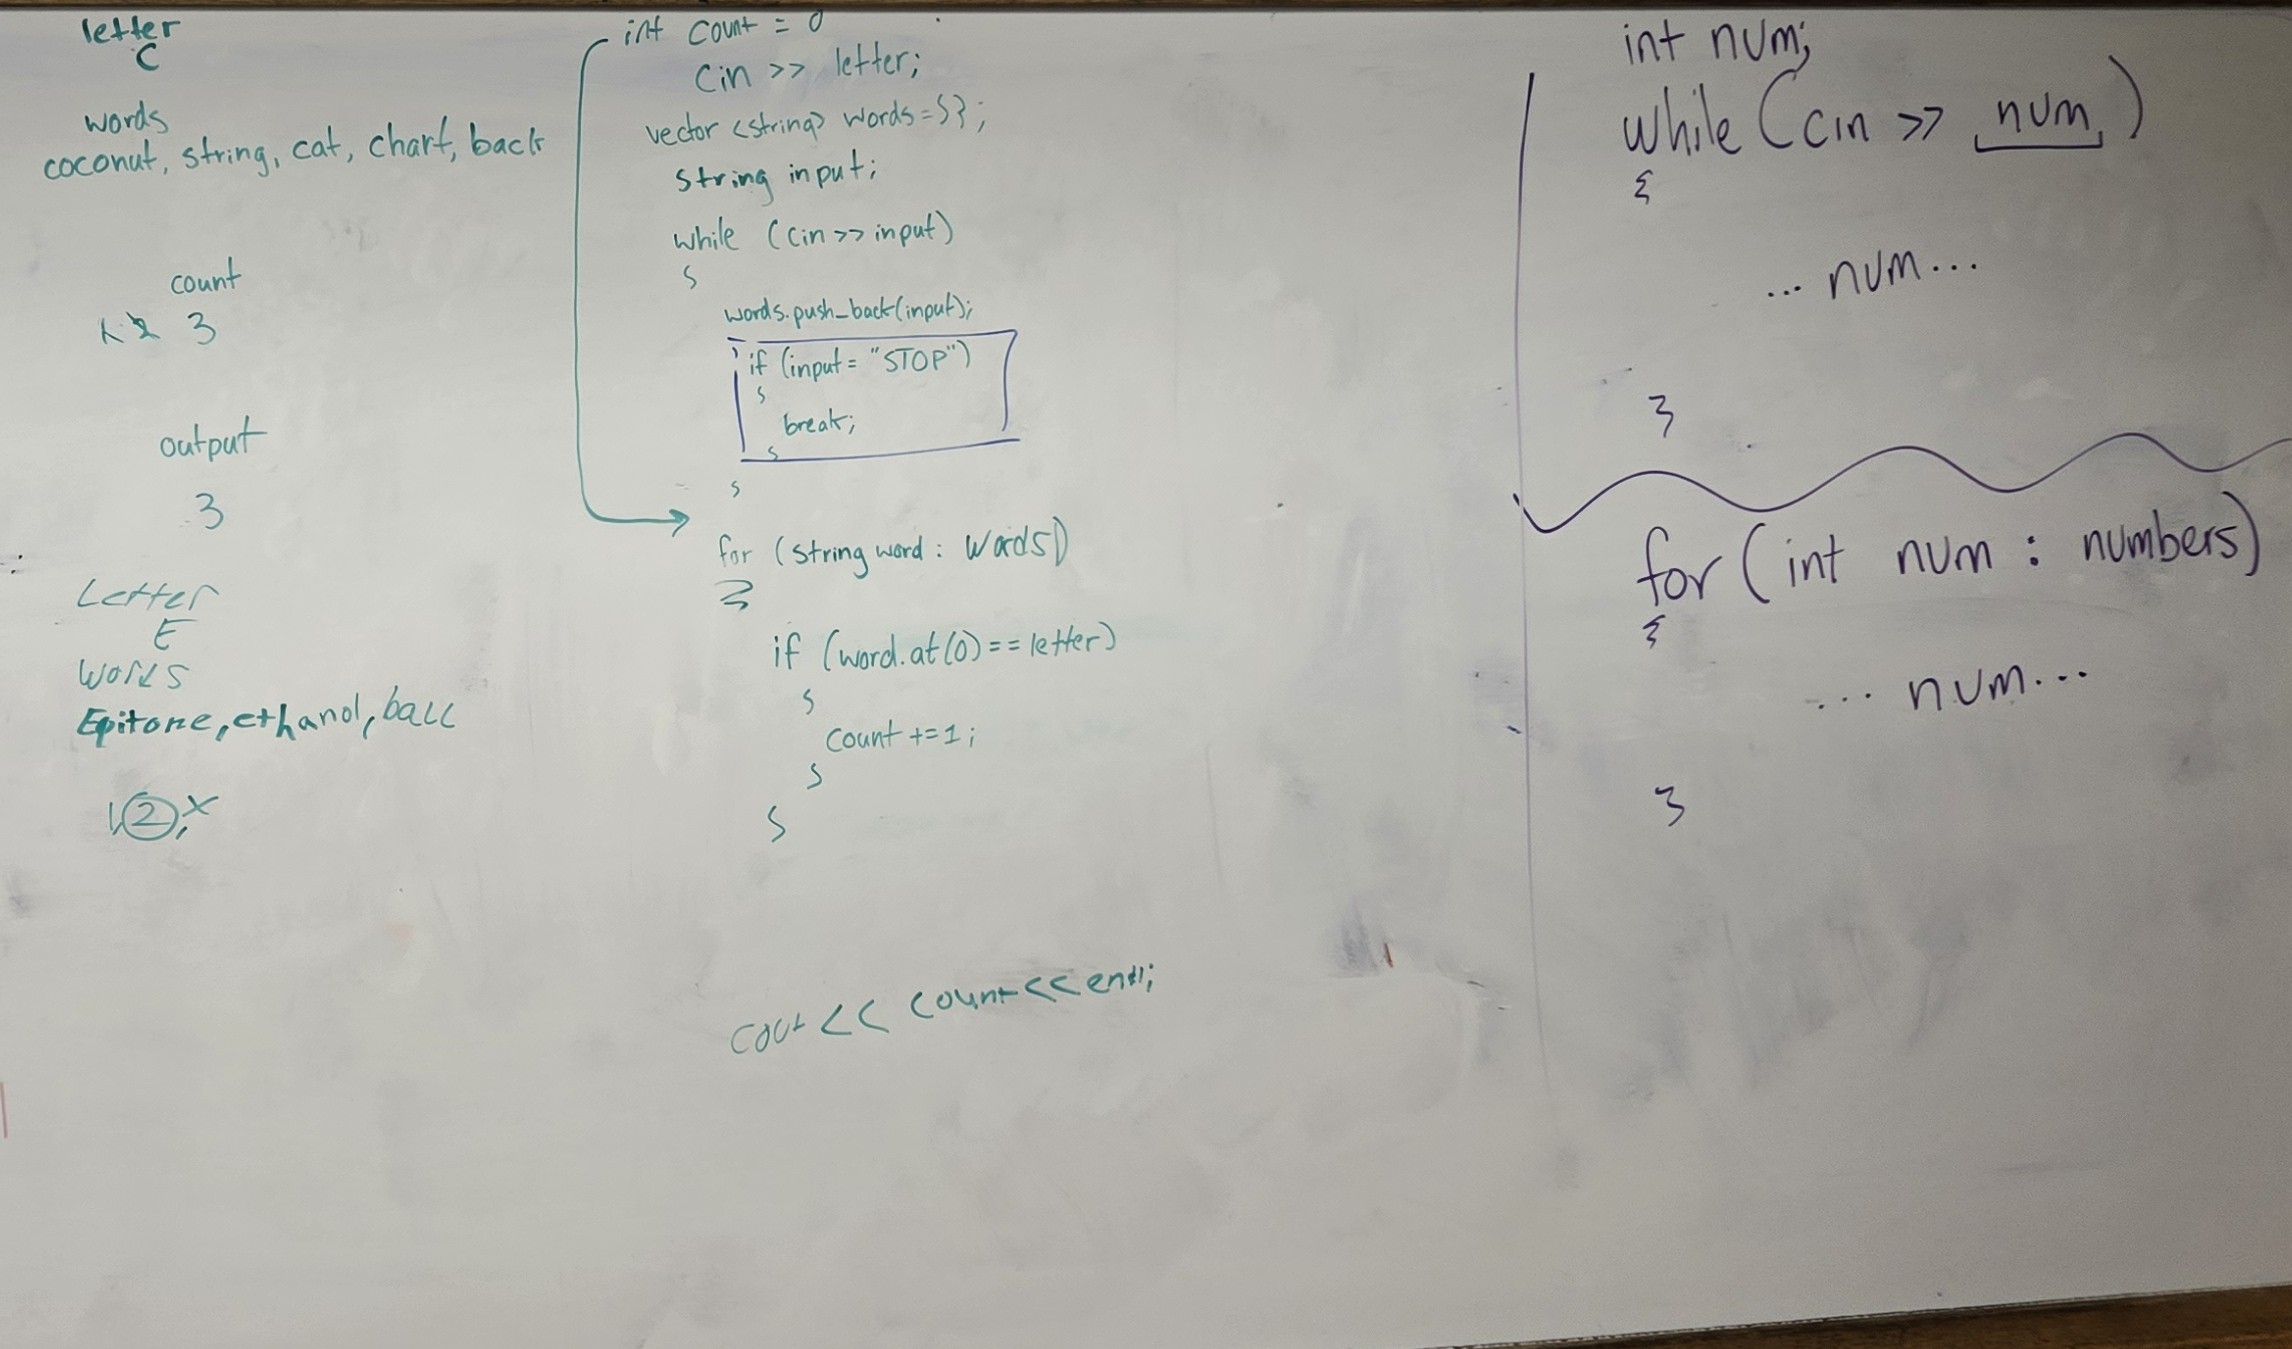 letter
C
words
coconut, string, cat, chart, back
count
1 2 3
output
3
Letter
E
Words
Epitome, ethanol, ball
1, 2, x
int count = 0
cin >> letter;
vector <string> words = {};
string input;
while (cin >> input)
{
words.push_back(input);
if (input = "STOP")
{
break;
}
}
for (string word : words)
{
if (word.at(0) == letter)
{
count += 1;
}
}
cout << count << endl;
int num;
while (cin >> num)
{
... num ...
}
for (int num : numbers)
{
... num ...
}